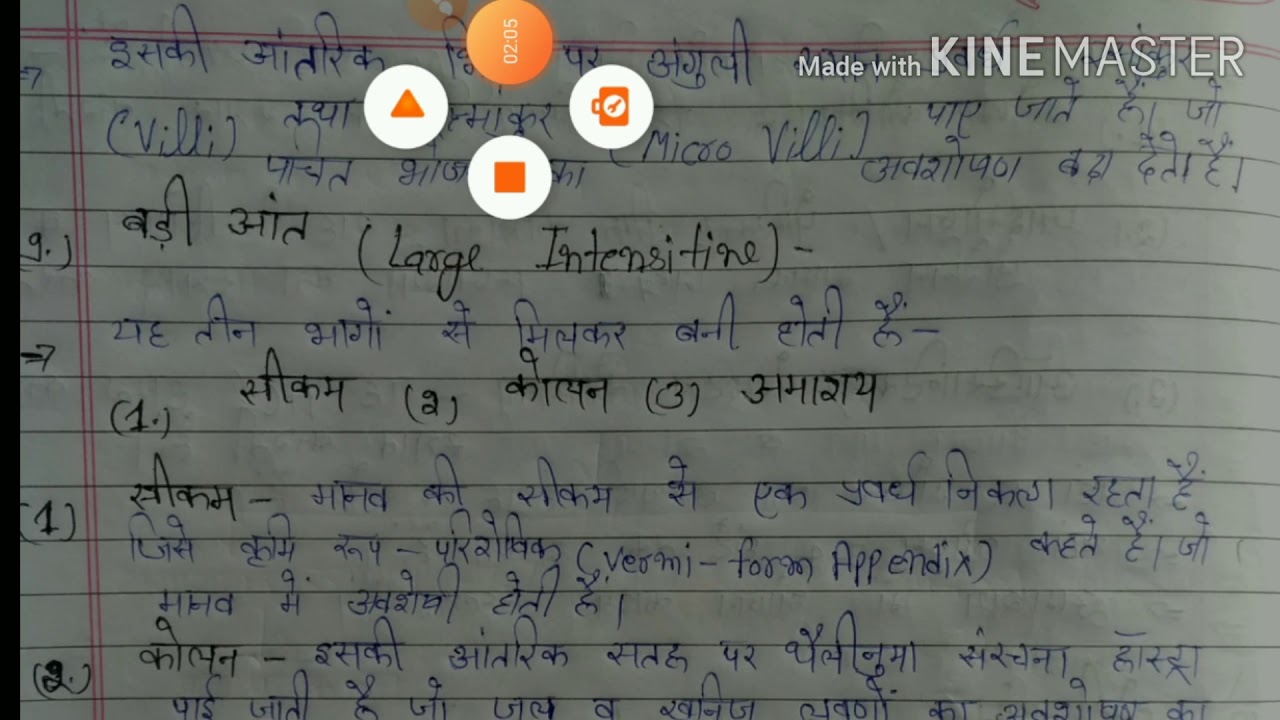 02:05
Made with KINEMASTER
⇒ इसकी आंतरिक पर अंगुली
(Villi) तथा (Micro Villi) पाए जाते हैं। जो
पाचित का अवशोषण बढ़ा देते हैं।
9.) बड़ी आंत (Large Intensitine) -
⇒ यह तीन भागों से मिलकर बनी होती हैं-
(1.) सीकम (२) कोलन (३) अमाशय
(1) सीकम - मानव की सीकम से एक प्रवर्ध निकला रहता हैं
जिसे कृमि रूप - परिशेषिक (Vermi-form Appendix) कहते हैं। जो
मानव में अवशेषी होती हैं।
(2.) कोलन - इसकी आंतरिक सतह पर थैलीनुमा संरचना हॉस्ट्रा
पाई जाती है जो जल व खनिज लवणों का अवशोषण का